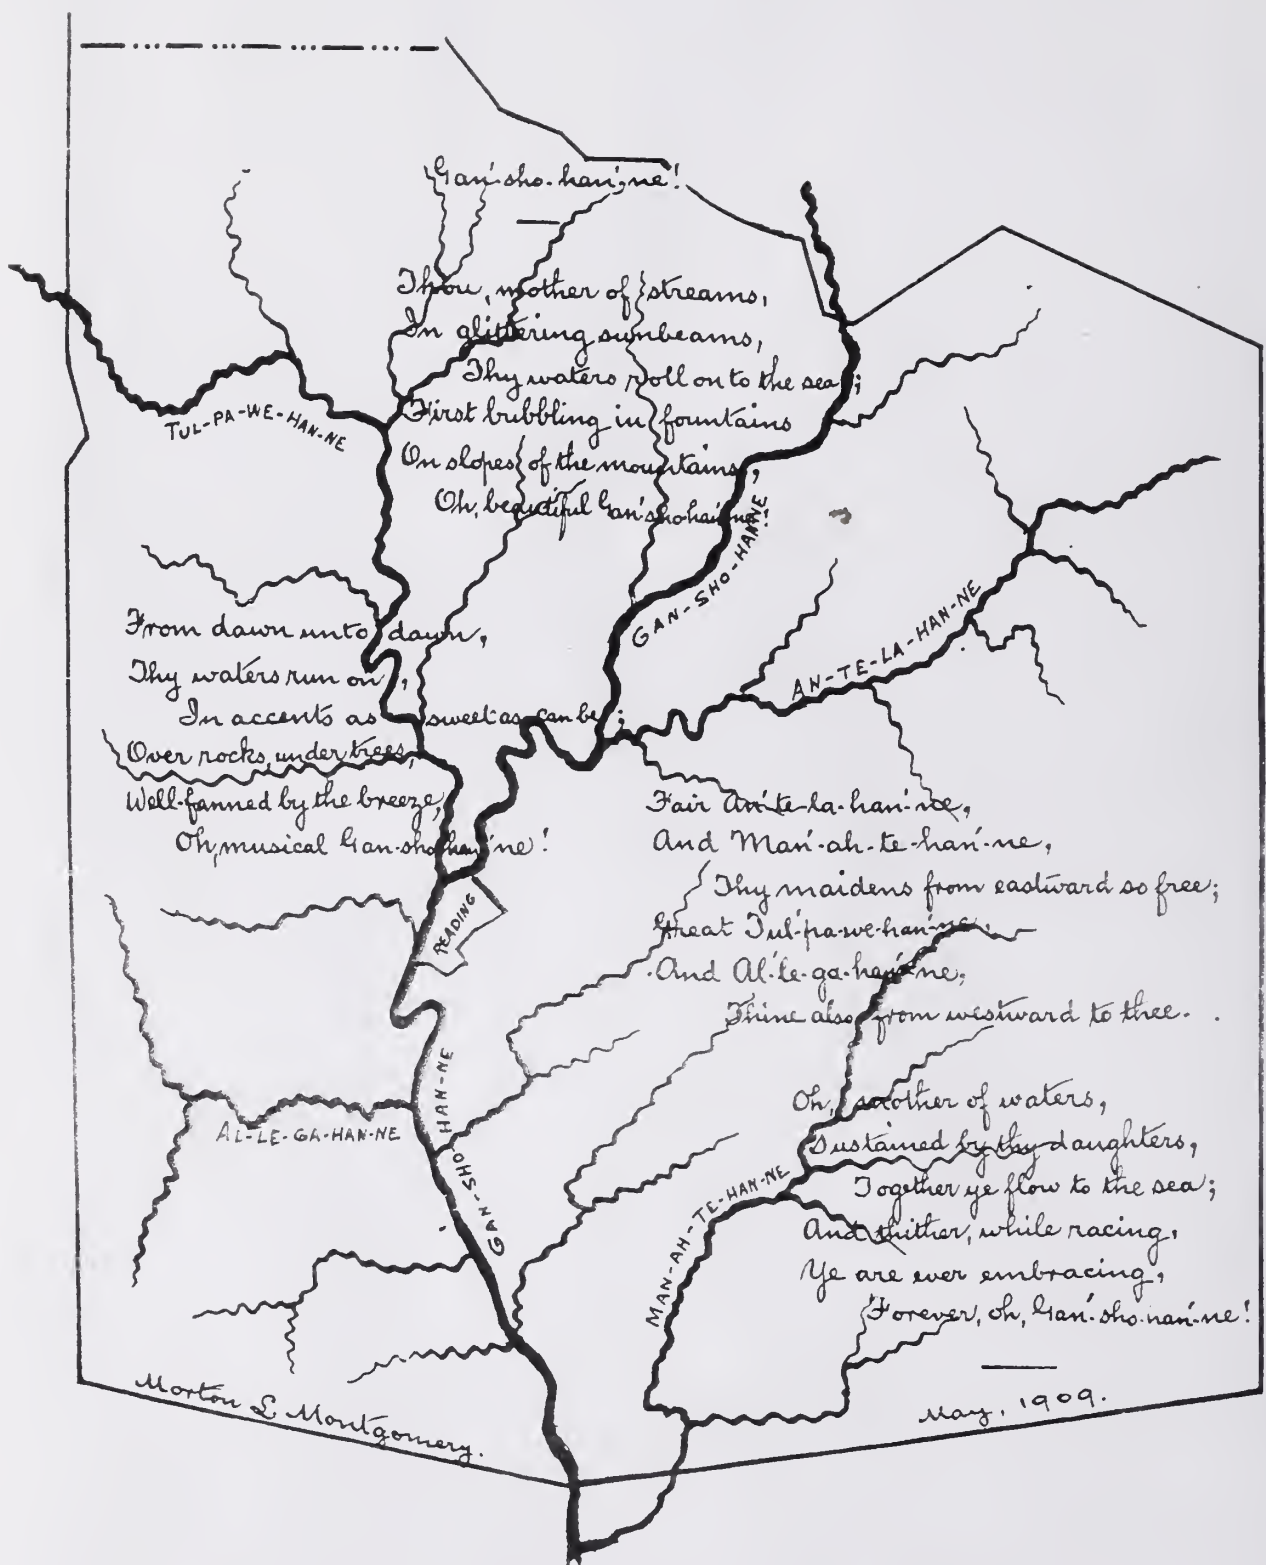 Gan'-sho-han'-ne!
Thou, mother of streams,
In glittering sunbeams,
Thy waters roll on to the sea;
First bubbling in fountains
On slopes of the mountains,
Oh, beautiful Gan'-sho-han'-ne!
TUL-PA-WE-HAN-NE
GAN-SHO-HAN-NE
AN-TE-LA-HAN-NE
From dawn unto dawn,
Thy waters run on,
In accents as sweet as can be;
Over rocks, under trees,
Well-fanned by the breeze,
Oh, musical Gan-sho-han'-ne!
Fair An'-te-la-han'-ne,
And Man'-ah-te-han'-ne,
Thy maidens from eastward so free;
Great Tul'-pa-we-han'-ne,
And Al'-le-ga-han'-ne,
Thine also from westward to thee.
READING
AL-LE-GA-HAN-NE
GAN-SHO-HAN-NE
MAN-AH-TE-HAN-NE
Oh, mother of waters,
Sustained by thy daughters,
Together ye flow to the sea;
And thither, while racing,
Ye are ever embracing,
Forever, oh, Gan'-sho-han'-ne!
Morton L. Montgomery.
May, 1909.